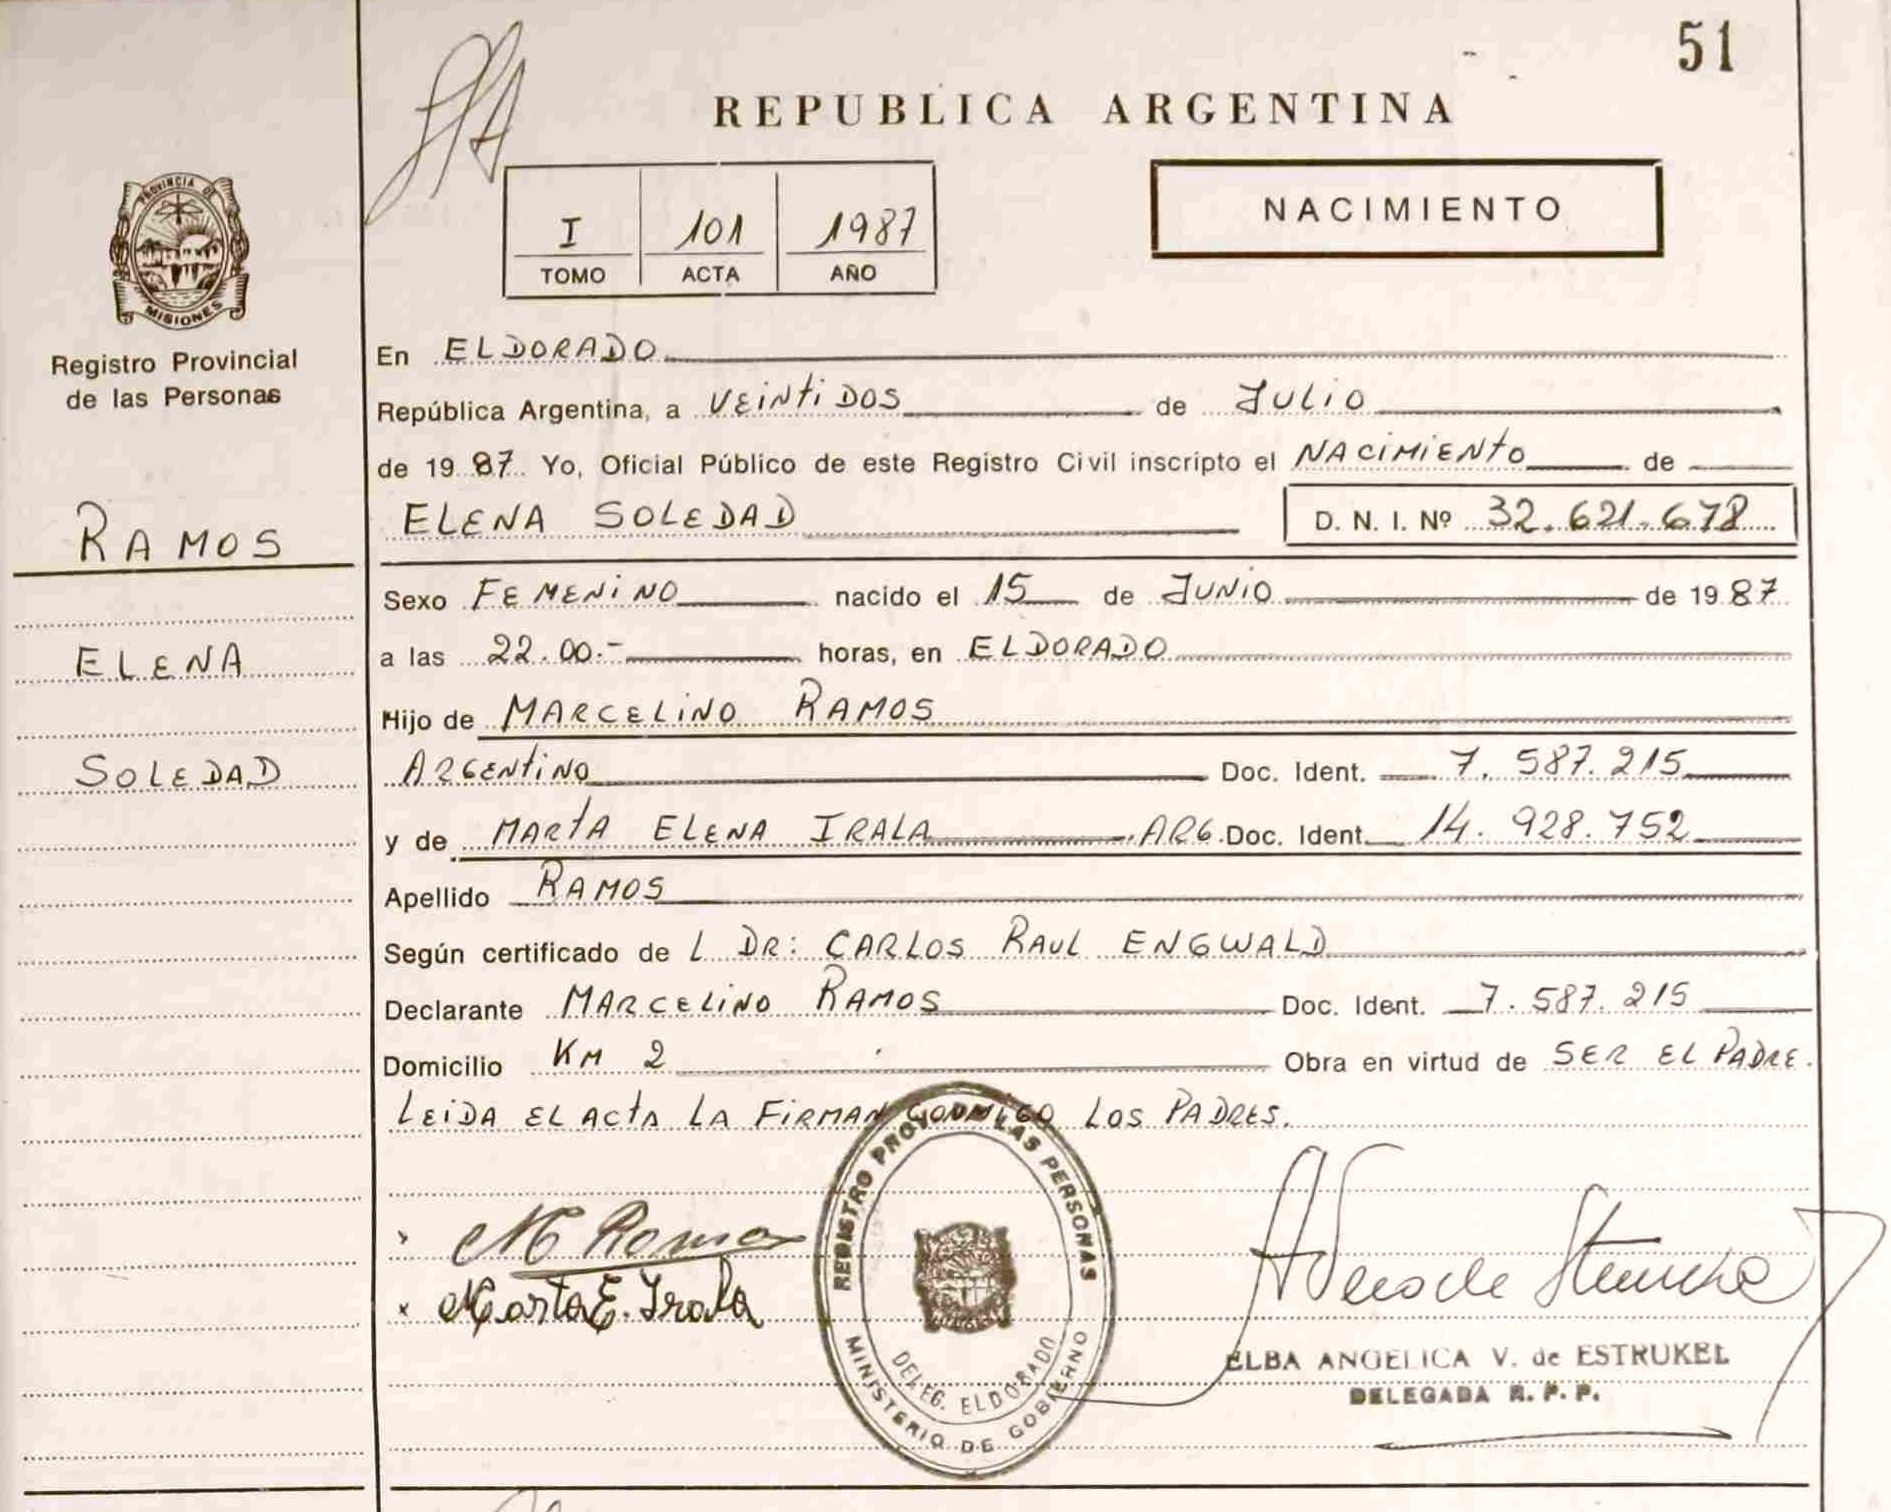 51
REPUBLICA ARGENTINA
PROVINCIA DE
MISIONES
Registro Provincial
de las Personas
I 101 1987
TOMO ACTA AÑO
NACIMIENTO
RAMOS
ELENA
SOLEDAD
En ELDORADO
República Argentina, a VEINTIDOS de JULIO
de 1987 Yo, Oficial Público de este Registro Civil inscripto el NACIMIENTO de
ELENA SOLEDAD D. N. I. Nº 32.621.678
Sexo FEMENINO nacido el 15 de JUNIO de 1987
a las 22.00.- horas, en ELDORADO
Hijo de MARCELINO RAMOS
ARGENTINO Doc. Ident. 7.587.215
y de MARTA ELENA IRALA ARG. Doc. Ident. 14.928.752
Apellido RAMOS
Según certificado de L DR: CARLOS RAUL ENGWALD
Declarante MARCELINO RAMOS Doc. Ident. 7.587.215
Domicilio KM 2 Obra en virtud de SER EL PADRE.
LEIDA EL ACTA LA FIRMAN CONMIGO LOS PADRES.
M Ramos
x Marta E. Irala
REGISTRO PROV. DE LAS PERSONAS
DELEG. ELDORADO
MINISTERIO DE GOBIERNO
ELBA ANGELICA V. de ESTRUKEL
DELEGADA R. P. P.